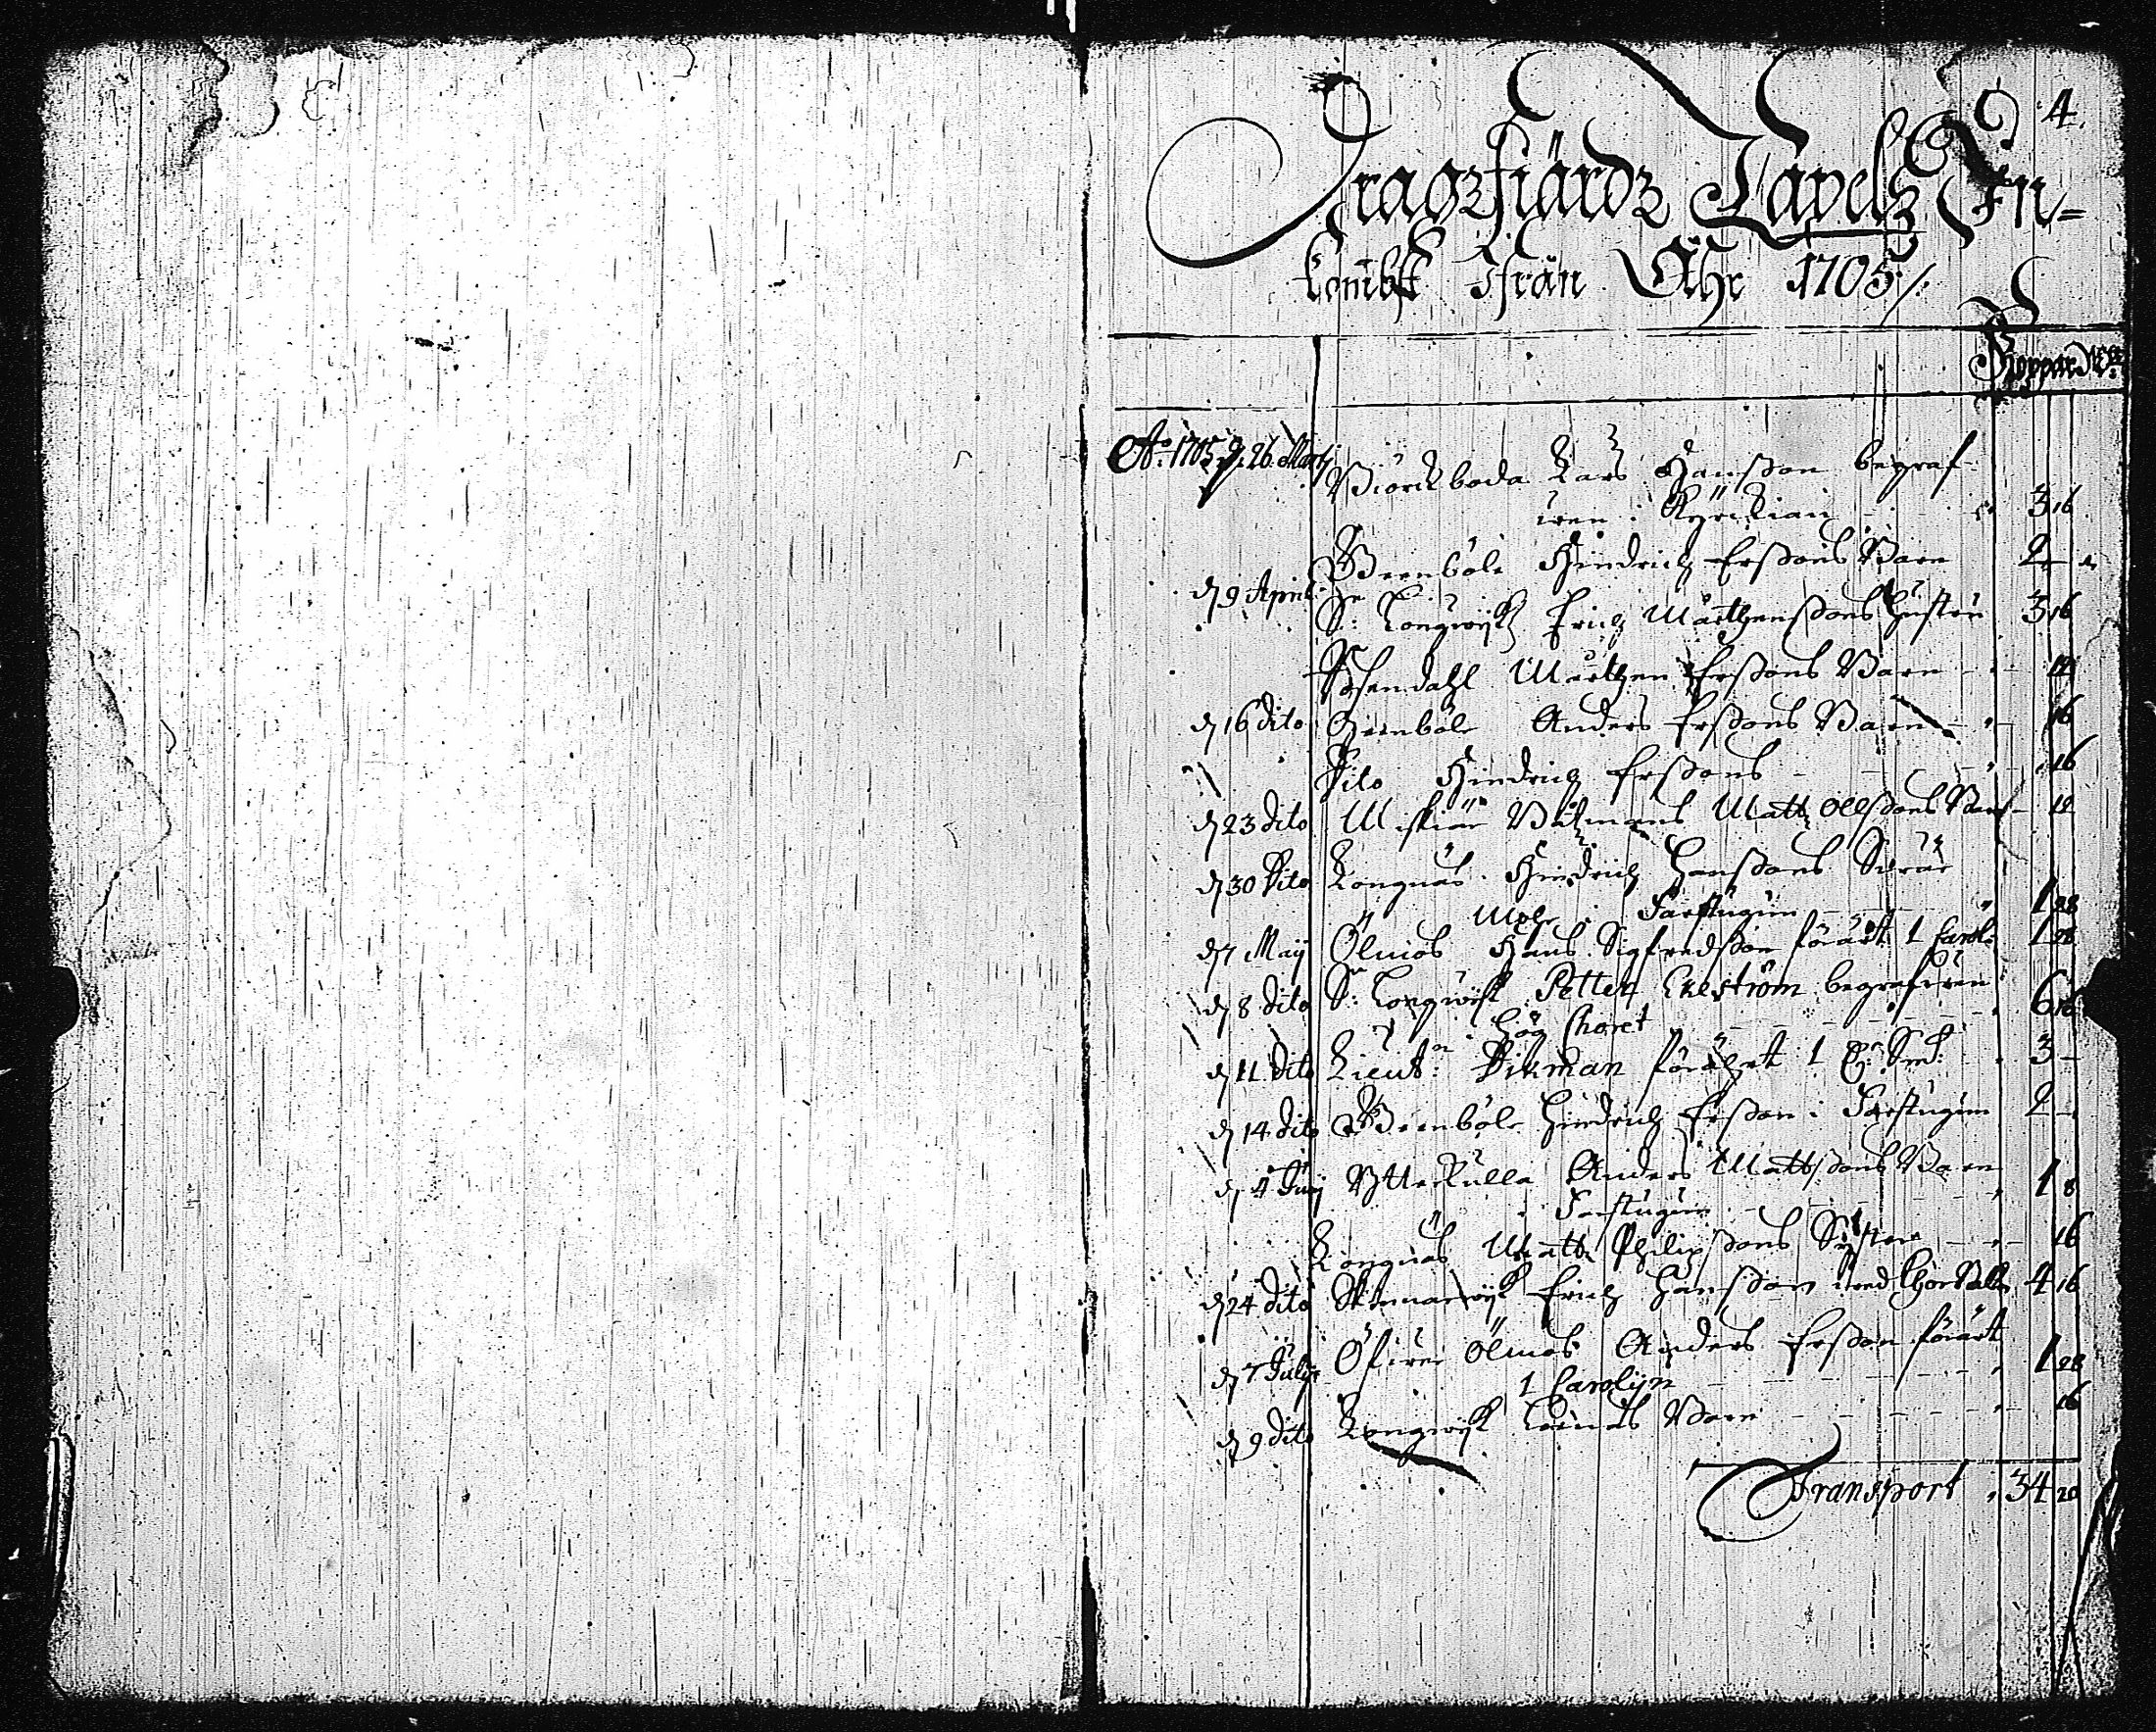 4.
Dragzfiärdz Capels In-
kombst ifrån Åhr 1705 /:
Koppar M:t
A:o 1705 d. 26 Martij Biörckboda Lars Hansson begraf-
wen i Kyrckian - - 3 16
Brenböle Hindrich Erssons Barn 2 -
d 9 April S: Longwyk Erich Mårthenssons hustru 3 16
Rosendahl Mårthen Erssons Barn - - 12
d 16 Dito Genböle Anders Erssons Barn - - 16
Dito Hindrich Erssons - - - 16
d 23 Dito Båtzmans Matz Ollssons Barn - 12
d 30 Dito Longnäs Hindrich Hanssons Swär
Moder i Farstugun - - 1 28
d 7 Maij Ölmos Hans Sigfredsson förärt 1 Carol: 1 28
d 8 dito S: Longwijk Petter Ekeström begrafwen
i hög Choret - - - 6 16
d 11 Dito Lieut:n Dikman förährt 1 - 3 -
d 14 dito Brenböle Hindrich Ersson i Farstugun 2 -
d 4 Junij Ytterkulla Anders Mattssons Barn
i Farstugun - - - 1 8
Longnäs Matts Philipssons Syster - - 16
d 24 dito Stenmarwijk Erich Hansson med 4 16
d 7 Julij Öfwer Ölmos Anders Ersson förärt
1 Carolijn - - - 1 28
d 9 dito Longwijk Barn - - - 16
Transport 34 20